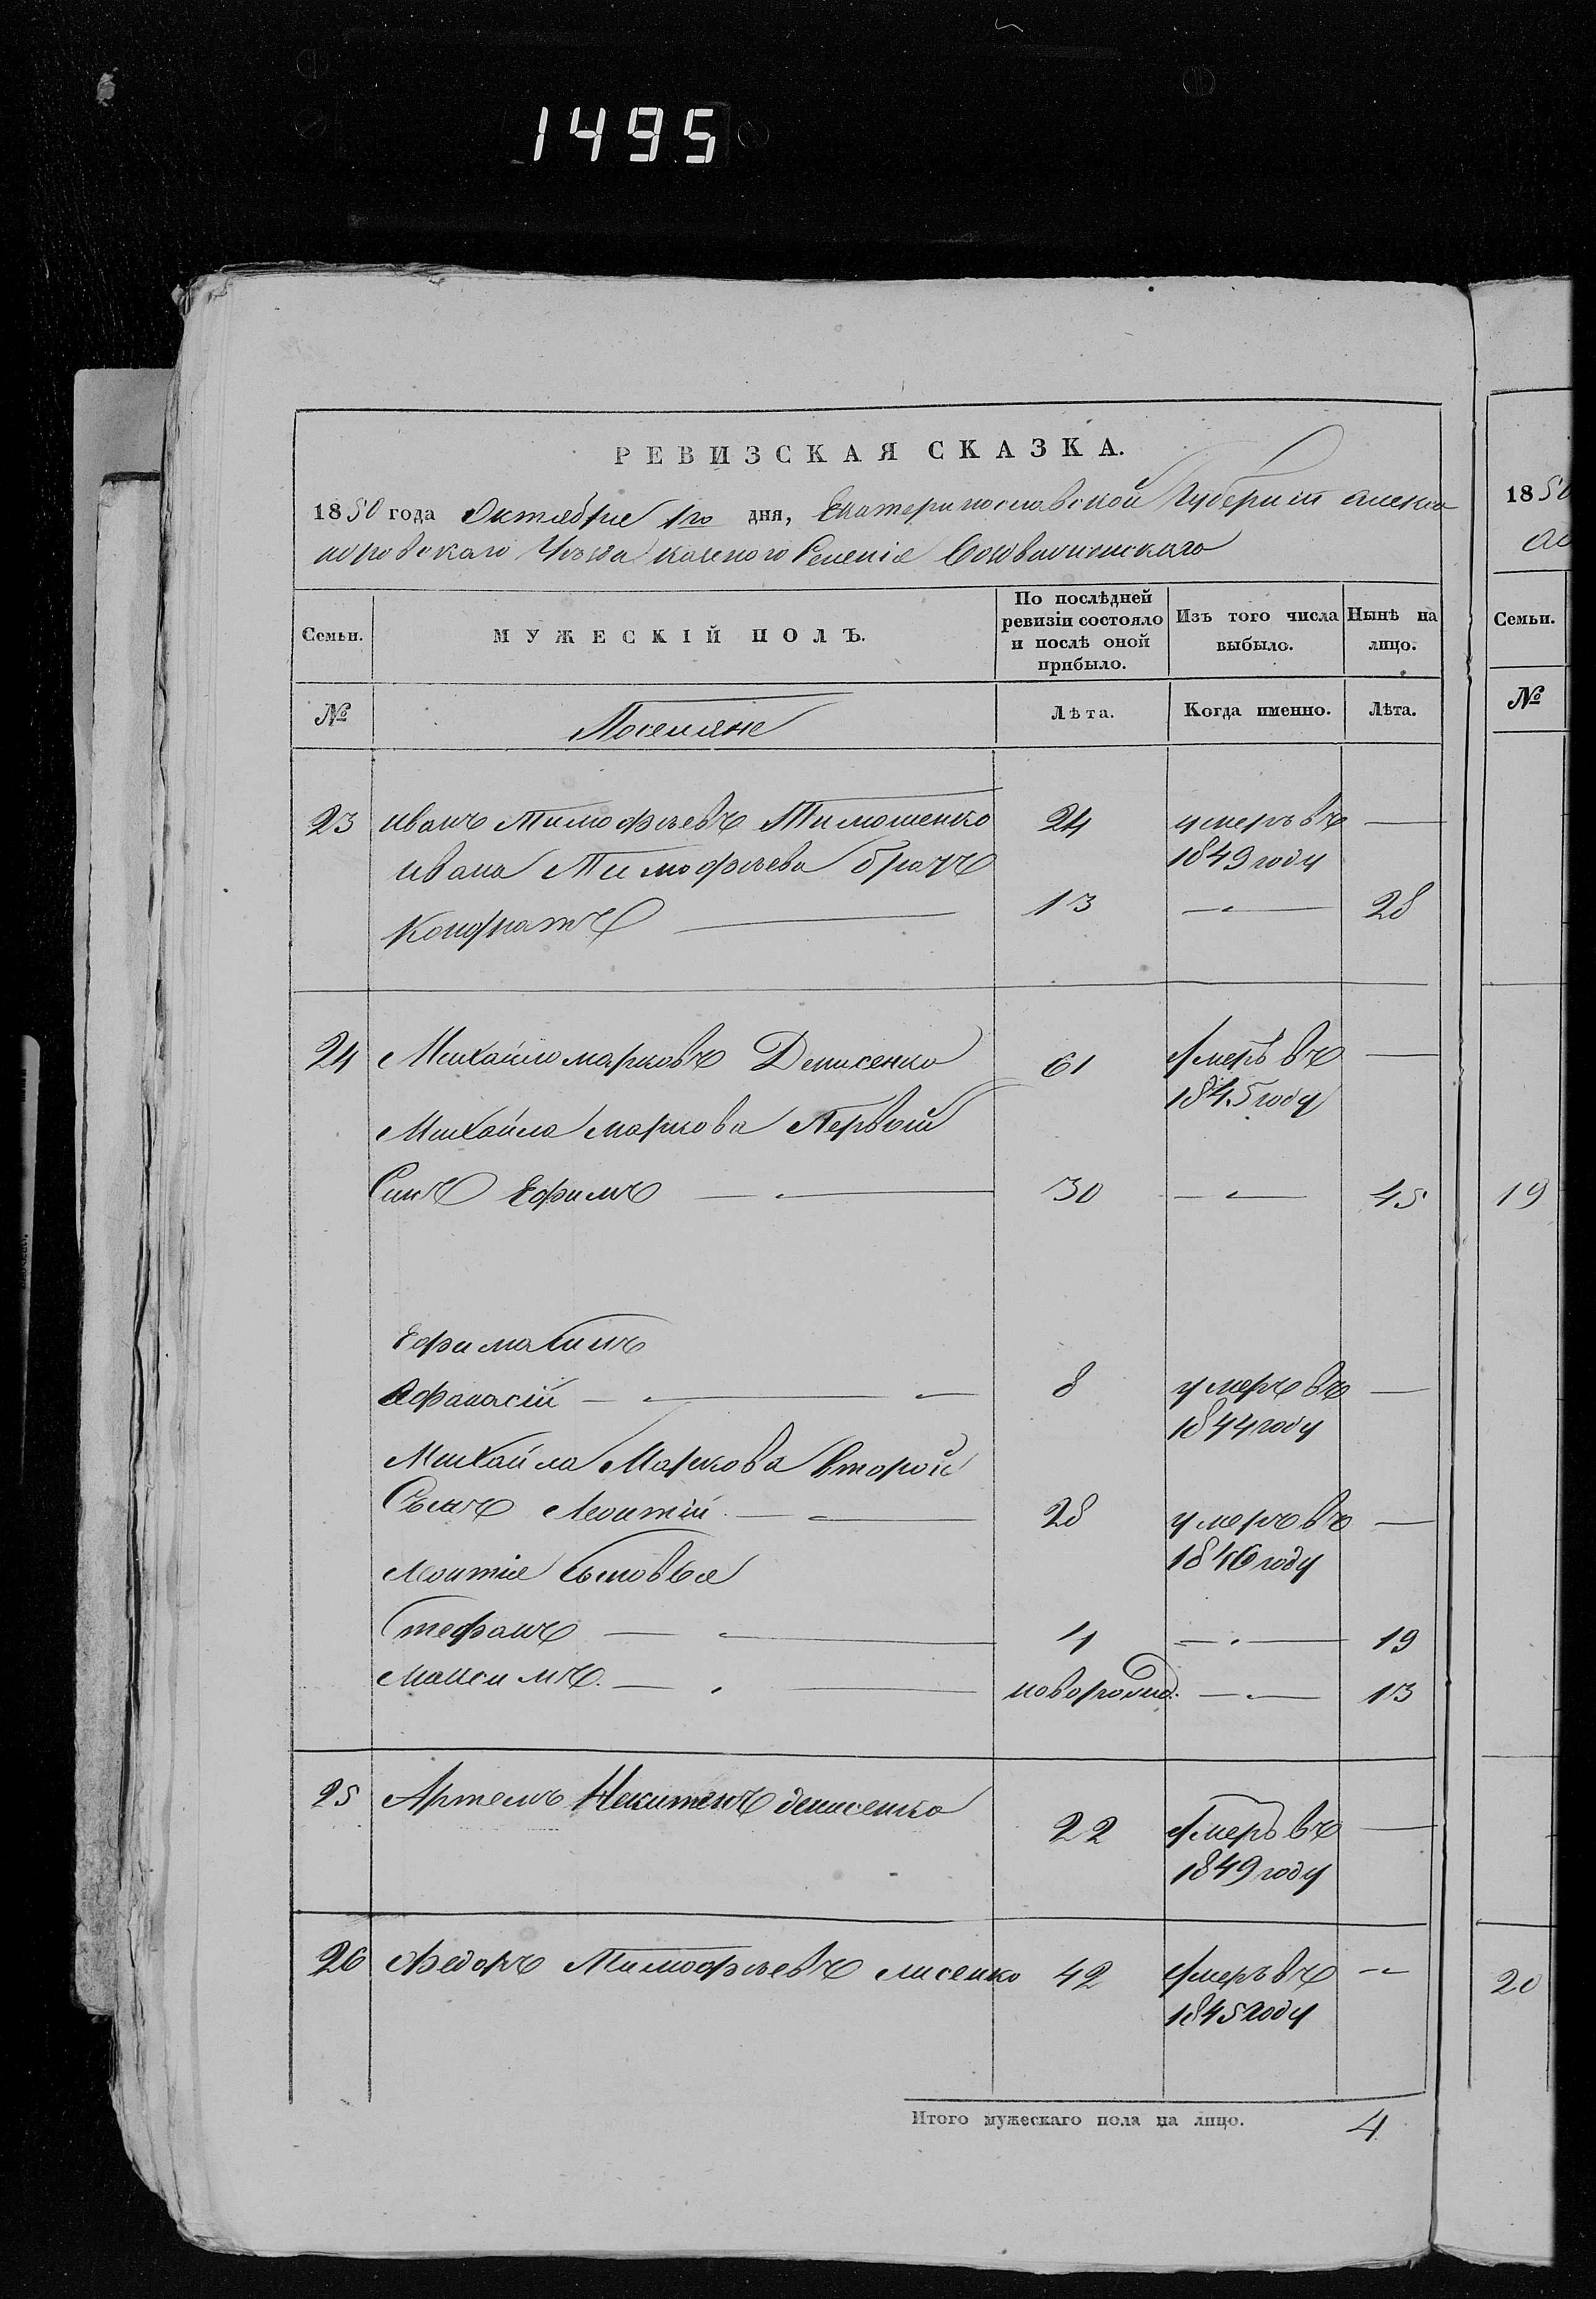 1495
РЕВИЗСКАЯ СКАЗКА.
1850 года Октября 1го дня, Екатеринославской Губернiи Алекса
ндровскаго Уезда казеного Селенiя
Семьи.
МУЖЕСКІЙ ПОЛЪ.
По послѣдней ревизіи состояло и послѣ оной прибыло.
Изъ того числа выбыло.
Нынѣ на лицо.
№
Поселяне
Лѣта.
Когда именно.
Лѣта.
23 иванъ Тимофѣевъ Тимошенко 24 умеръ въ —
ивана Тимофѣева братъ 1849 году
Кондратъ — 13 — 28
24 Михайло марковъ Денисенко 61 Умеръ въ —
1845 году
Михайла маркова Первый
Синъ Ефимъ — 30 — 45
Ефима Синъ
Афанасiй — 8 умеръ въ —
1844 году
Михайла Маркова Второй
Сынъ Леонтiй — 28 умеръ въ —
1846 году
Леонтiя Сыновья
Стефанъ — 4 — 19
Максимъ. — новорожд. — 13
25 Артемъ Никитинъ денисенко 22 Умеръ въ —
1849 году
26 Федоръ Тимофѣевъ лисенко 42 Умеръ въ —
1845 году
Итого мужескаго пола на лицо. 4
1850
Семьи.
№
19
20